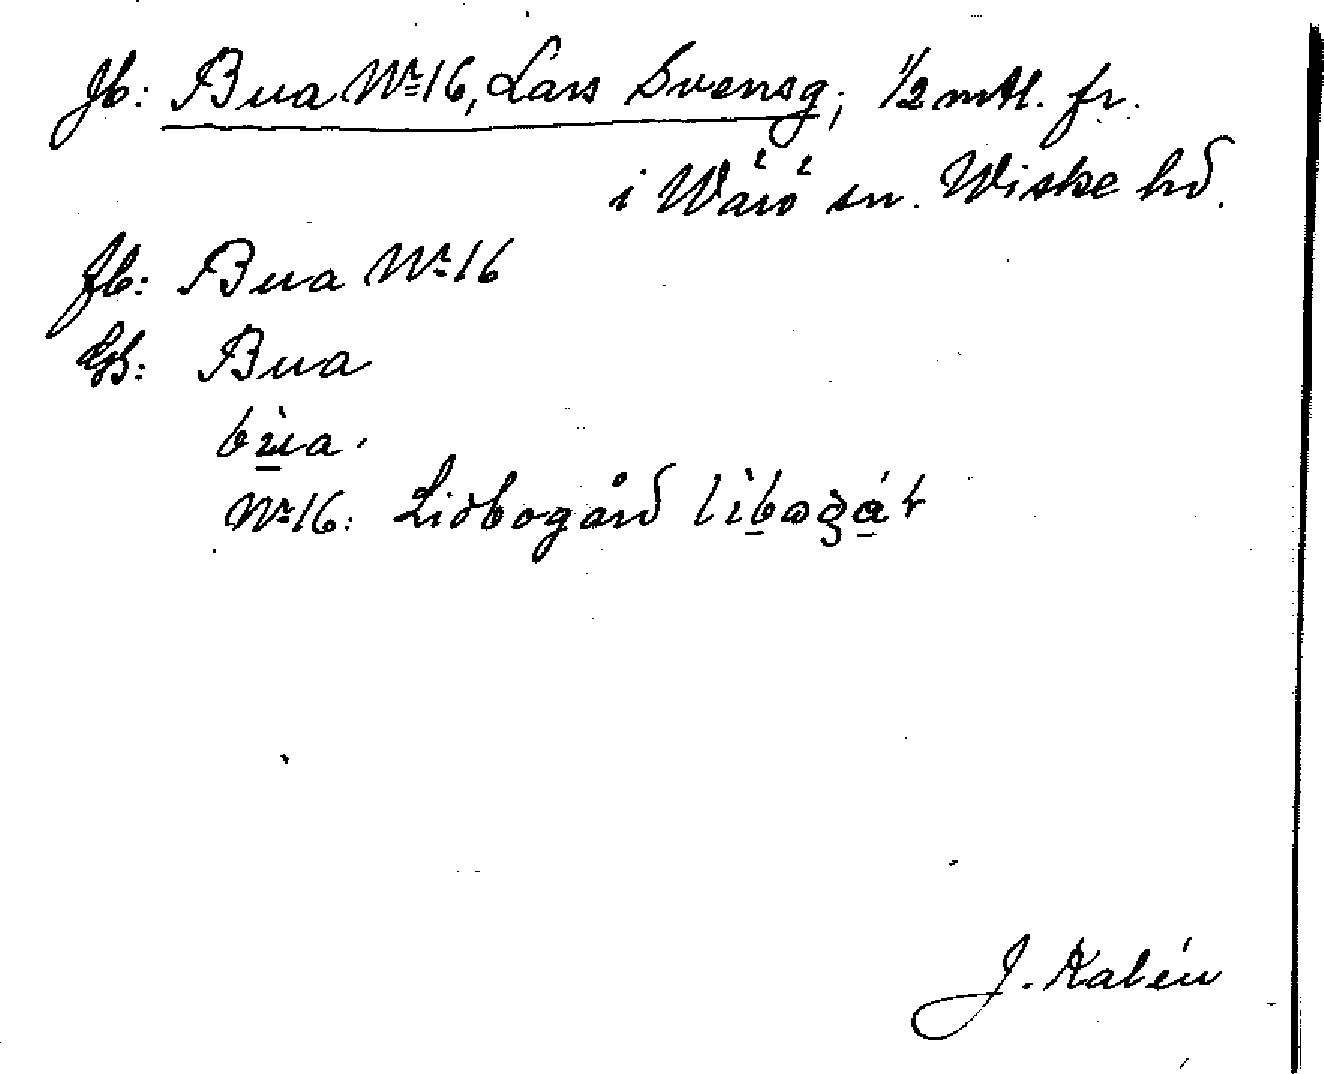 Jb: Bua No 16, Lars Svensg; 1/2 mtl. fr.
i Wärö sn. Wiske hd.
Jb: Bua No 16
Bua
bùa.
No 16: Lidbogård
J. Kalén